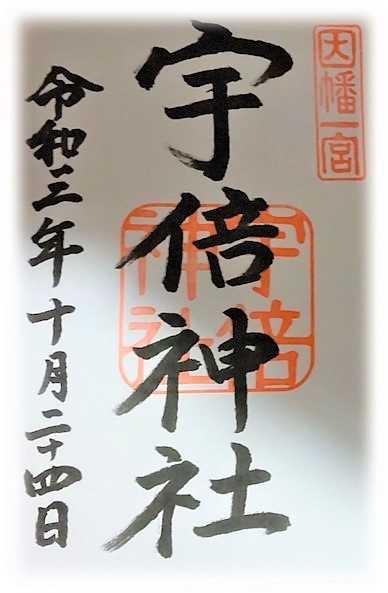 因幡一宮
宇倍神社
宇倍
神社
令和三年十月二十四日